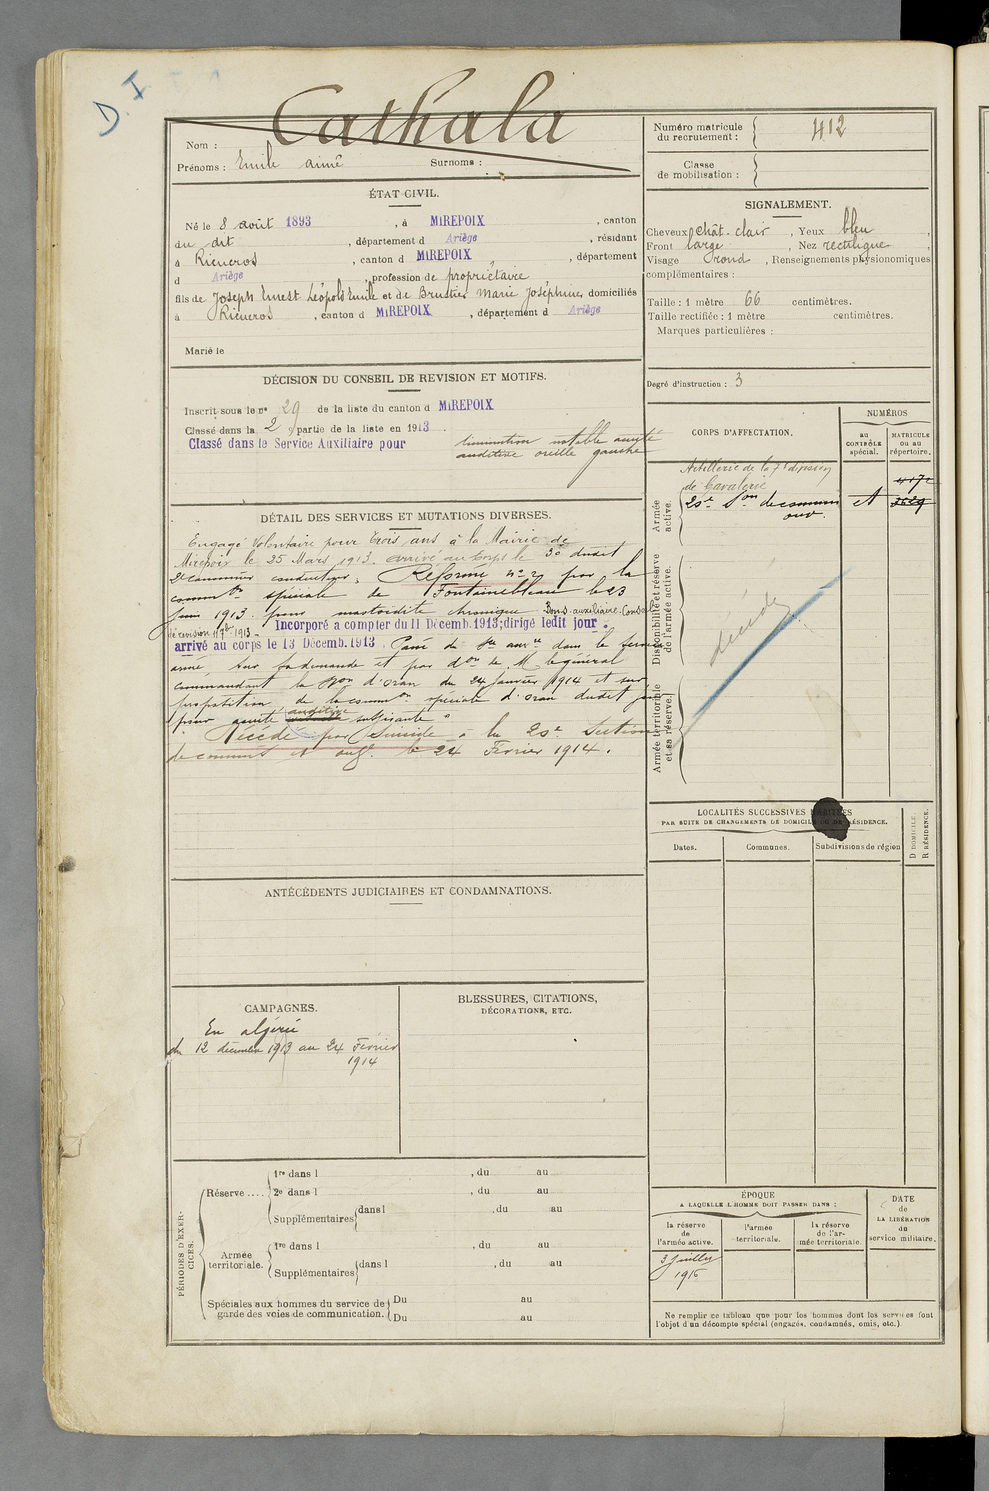 D. I
Cathala
Nom :
Prénoms : Emile aimé Surnoms :
Numéro matricule du recrutement : 412
Classe de mobilisation :
ÉTAT CIVIL.
Né le 8 août 1893, à MIREPOIX, canton
du dit, département d Ariège, résidant
à Rieucros, canton d MIREPOIX, département
d Ariège, profession de propriétaire
fils de Joseph Ernest Léopold Emile et de Brustier Marie Joséphine, domiciliés
à Rieucros, canton d MIREPOIX, département d Ariège
Marié le
SIGNALEMENT.
Cheveux chât-clair, Yeux bleu,
Front large, Nez rectiligne
Visage rond, Renseignements physionomiques
complémentaires :
Taille : 1 mètre 66 centimètres.
Taille rectifiée : 1 mètre centimètres.
Marques particulières :
Degré d'instruction : 3
DÉCISION DU CONSEIL DE REVISION ET MOTIFS.
Inscrit sous le n° 29 de la liste du canton d MIREPOIX
Classé dans la 2 partie de la liste en 1913.
Classé dans le Service Auxiliaire pour diminution notable acuité
auditive oreille gauche
DÉTAIL DES SERVICES ET MUTATIONS DIVERSES.
Engagé Volontaire pour trois ans à la Mairie de
Mirepoix le 25 Mars 1913. arrivé au Corps le 30 dudit
2e canonnier conducteur. Réformé n° 2 par la
common spéciale de Fontainebleau le 23
Juin 1913. pour mastoïdite chronique. Bon s. auxiliaire. Conseil
de révision 1913 - Incorporé a compter du 11 Décemb. 1913; dirigé ledit jour.
arrivé au corps le 13 Décemb. 1913. Passé du Sce auxre dans le service
armé sur sa demande et par don de M. le général
commandant la Don d'Oran du 24 janvier 1914 et sur
proposition de la common spéciale d'Oran dudit jour
pour acuité auditive suffisante"
Décédé par Suicide à la 20e Section
de commis et ouv. le 24 Février 1914.
CORPS D'AFFECTATION.
NUMÉROS
au CONTRÔLE spécial.
MATRICULE ou au répertoire.
Armée active.
Artillerie de la 7e division
de Cavalerie
20e Son de commis et
ouv.
Disponibilité et réserve de l'armée active.
décédé
Armée territoriale et sa réserve.
LOCALITÉS SUCCESSIVES HABITÉES
PAR SUITE DE CHANGEMENTS DE DOMICILE OU DE RÉSIDENCE.
Dates.
Communes.
Subdivisions de région
D DOMICILE.
R RÉSIDENCE.
ANTÉCÉDENTS JUDICIAIRES ET CONDAMNATIONS.
CAMPAGNES.
En algérie
du 12 décembre 1913 au 24 Février
1914
BLESSURES, CITATIONS,
DÉCORATIONS, ETC.
PÉRIODES D'EXERCICES.
Réserve ....
1re dans l , du au
2e dans l , du au
Supplémentaires dans l , du au
Armée territoriale.
1re dans l , du au
Supplémentaires dans l , du au
Spéciales aux hommes du service de garde des voies de communication.
Du au
Du au
ÉPOQUE
A LAQUELLE L'HOMME DOIT PASSER DANS :
la réserve de l'armée active.
l'armée territoriale.
la réserve de l'armée territoriale.
DATE
de
LA LIBÉRATION
du
service militaire.
3 Juillet
1916
Ne remplir ce tableau que pour les hommes dont les services font
l'objet d'un décompte spécial (engagés, condamnés, omis, etc.)